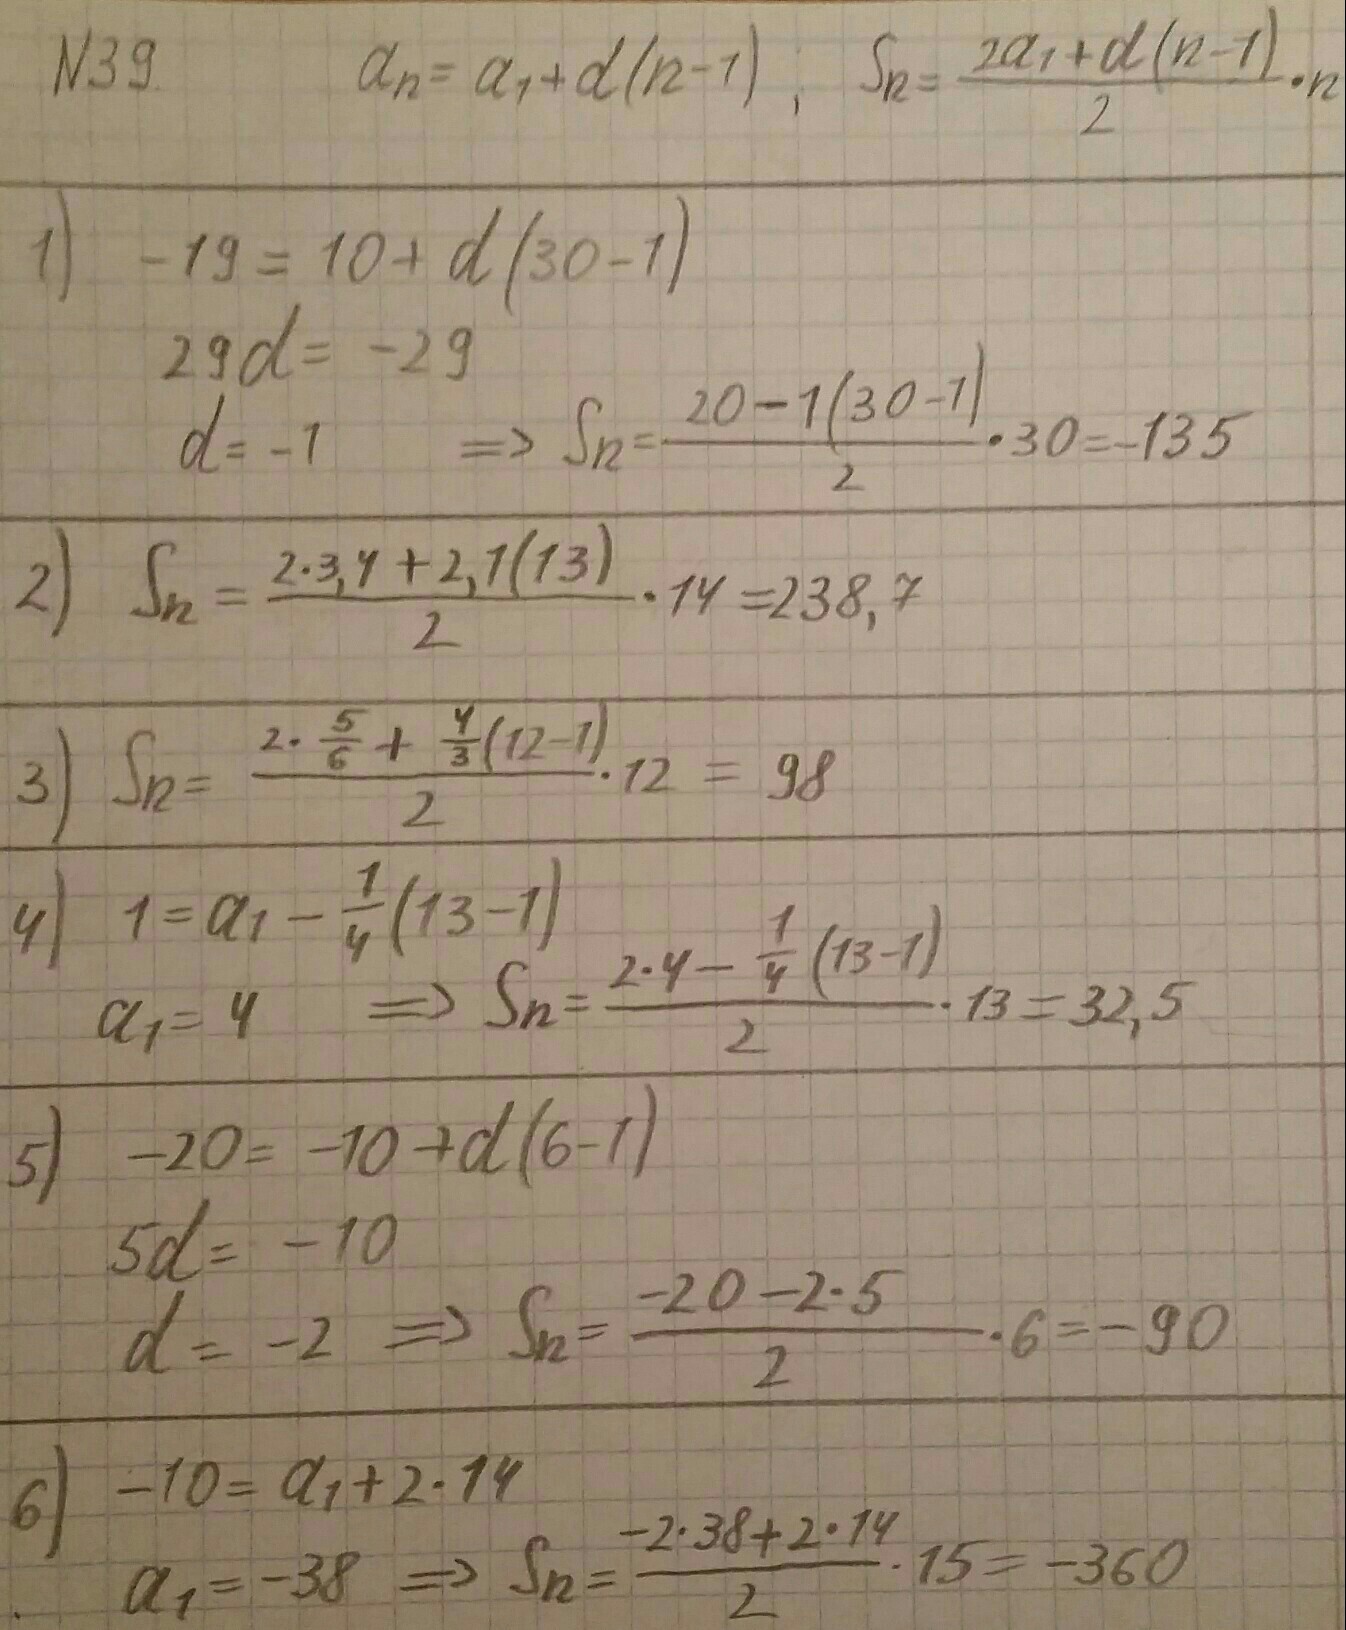 N39. aₙ = a₁ + d(n-1) ; Sₙ = (2a₁ + d(n-1))/2 · n
1) -19 = 10 + d(30-1)
29d = -29
d = -1 => Sₙ = (20 - 1(30-1))/2 · 30 = -135
2) Sₙ = (2·3,4 + 2,1(13))/2 · 14 = 238,7
3) Sₙ = (2 · 5/6 + 4/3(12-1))/2 · 12 = 98
4) 1 = a₁ - 1/4(13-1)
a₁ = 4 => Sₙ = (2·4 - 1/4(13-1))/2 · 13 = 32,5
5) -20 = -10 + d(6-1)
5d = -10
d = -2 => Sₙ = (-20 - 2·5)/2 · 6 = -90
6) -10 = a₁ + 2·14
a₁ = -38 => Sₙ = (-2·38 + 2·14)/2 · 15 = -360